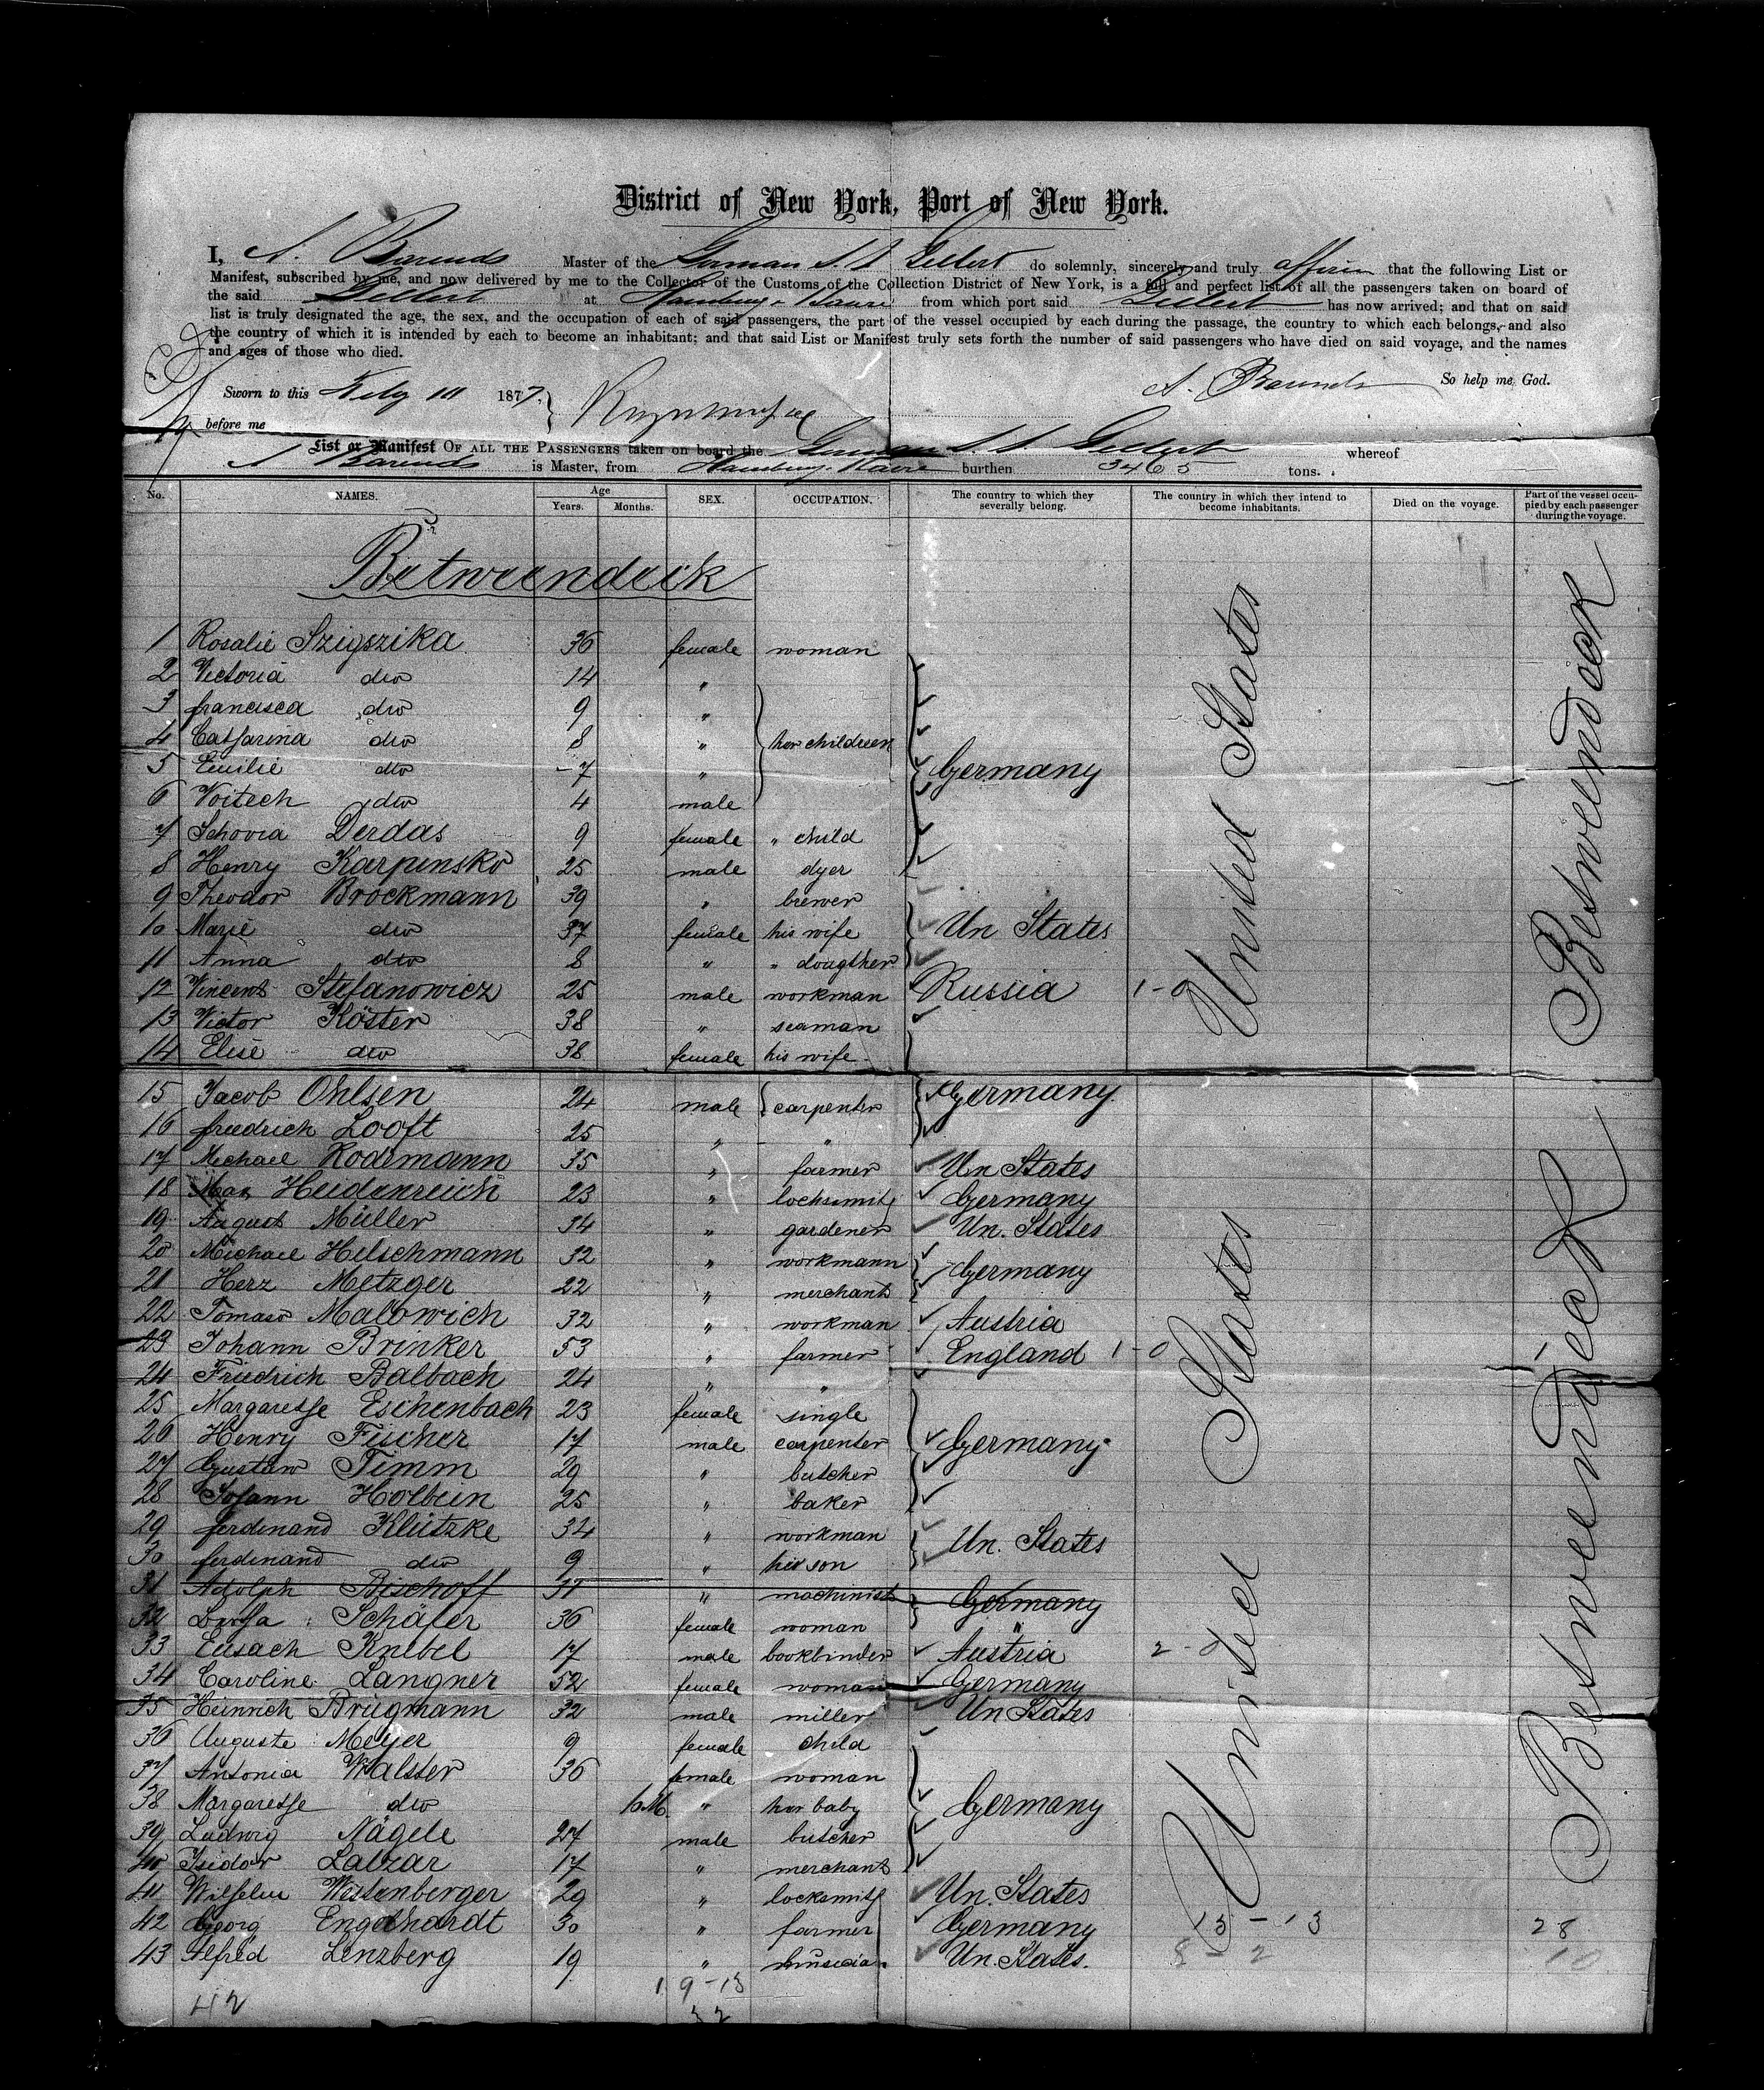 District of New York, Port of New York.
I, A. Barends Master of the German S. S. Gellert do solemnly, sincerely and truly affirm that the following List or
Manifest, subscribed by me, and now delivered by me to the Collector of the Customs of the Collection District of New York, is a full and perfect list of all the passengers taken on board of
the said Gellert at Hamburg & Havre from which port said Gellert has now arrived; and that on said
list is truly designated the age, the sex, and the occupation of each of said passengers, the part of the vessel occupied by each during the passage, the country to which each belongs, and also
the country of which it is intended by each to become an inhabitant; and that said List or Manifest truly sets forth the number of said passengers who have died on said voyage, and the names
and ages of those who died.
A. Barends So help me God.
Sworn to this 1877.
before me
List or Manifest OF ALL THE PASSENGERS taken on board the German S. S. Gellert whereof
A Barends is Master, from Hamburg, Havre burthen 3465 tons.
No. NAMES. Age Years. Months. SEX. OCCUPATION. The country to which they severally belong. The country in which they intend to become inhabitants. Died on the voyage. Part of the vessel occupied by each passenger during the voyage.
Betweendeck
1 Rosalie Szigszika 36 female woman
2 Victoria dto 14 "
3 francisca dto 9 "
4 Catharina dto 8 " her children
5 Emilie dto 7 " Germany
6 Voitech dto 4 male
7 Derdas 9 female " child
8 Henry Karpinsko 25 male dyer
9 Theodor Brockmann 39 " brewer
10 Marie dto 37 female his wife Un States
11 Anna dto 8 " " dougther
12 Vincent Stefanowicz 25 male workman Russia 1-0
13 Victor Köster 38 " seaman
14 Elise dto 38 female his wife
15 Jacob Ohlsen 24 male carpenter Germany
16 friedrich Looft 25 " "
17 Michael Rodemann 35 " farmer Un States
18 Max Heidenreich 23 " locksmith Germany
19 August Müller 34 " gardener Un. States
20 Michael Helschmann 32 " workmann
21 Herz Metzger 22 " merchant Germany
22 Tomaso Malowich 32 " workman Austria
23 Johann Brinker 53 " farmer England 1-0
24 Friedrich Balbach 24 " "
25 Margarethe Eschenbach 23 female single
26 Henry Fischer 17 male carpenter Germany
27 Gustav Timm 29 " butcher
28 Johann Holbein 25 " baker
29 ferdinand Klützke 34 " workman Un. States
30 ferdinand dto 9 " his son
31 Adolph Bischoff 37 " machinist Germany
32 Bertha Schäfer 36 female woman "
33 Knebel 17 male bookbinder Austria 2-0
34 Caroline Langner 52 female woman Germany
35 Heinrich Brügmann 32 male miller Un States
36 Auguste Meyer 9 female child
37 Antonia Walster 36 female woman
38 Margarethe dto " her baby Germany
39 Ludwig Nägele 27 male butcher
40 Isidor Labzar 17 " merchant
41 Wilhelm Westenberger 29 " locksmith Un. States
42 Georg Engelhardt 30 " farmer Germany 15-13 28
43 Alfred Lenzberg 19 " musician Un. States. 8-2 10
19-13
42 32
United States
Betweendeck
United States
Betweendeck